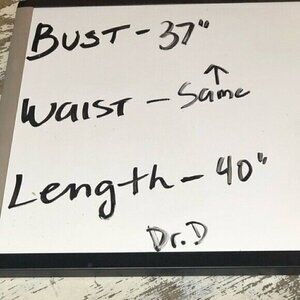 BUST - 37"
WAIST - Same ↑
Length - 40"
Dr. D